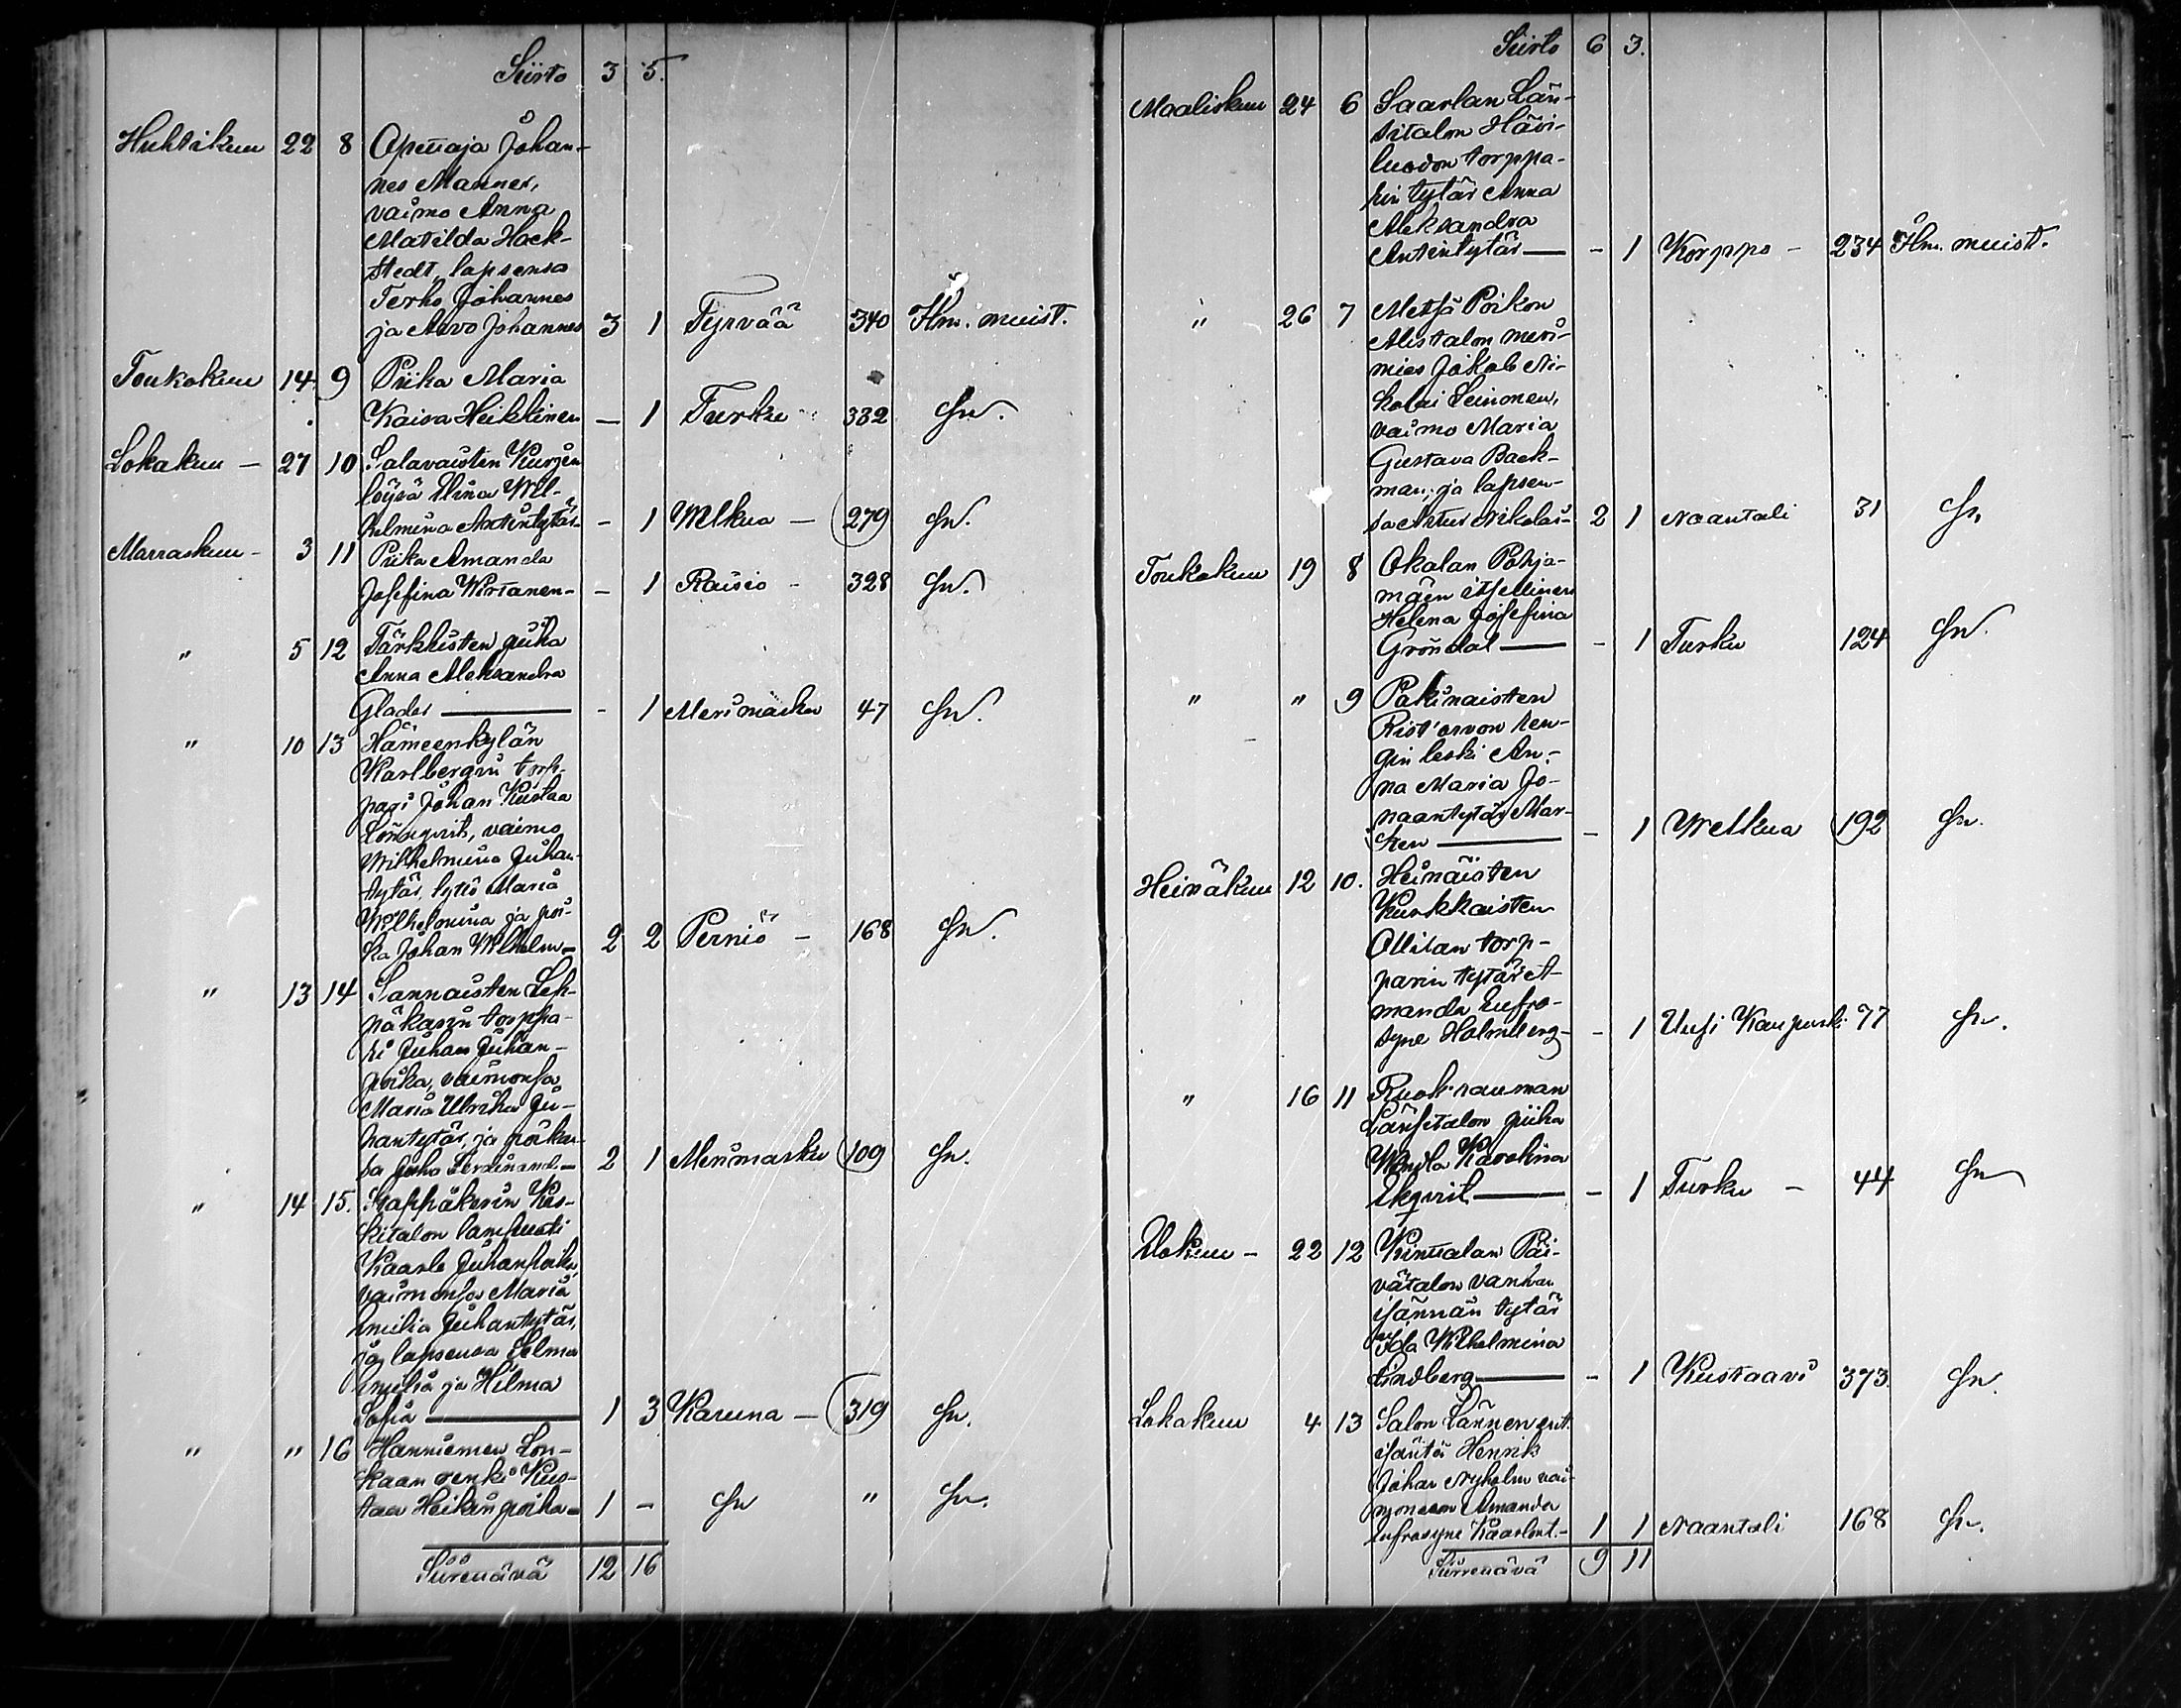 Siirto 3 5.
Huhtikuu 22 8 Opettaja Johan-
nes Manner,
vaimo Anna
Matilda Hack-
stedt, lapsensa
Terho Johannes
ja Arvo Johannes 3 1 Tyrvää 340 Ilm. muist.
Toukokuu 14 9 Piika Maria
Kaisa Heikkinen — 1 Turku 332 Sn.
Lokakuu — 27 10 Salavaisten Kurjen
löysä Elina Wil-
helmina Antintytär - 1 Welkua — 279 Sn.
Marraskuu - 3 11 Piika Amanda
Josefina Wirtanen - - 1 Raisio - 328 Sn.
" 5 12 Tärkkisten piika
Anna Aleksandra
Glader — - 1 Merimasku 47 Sn.
" 10 13 Hämeenkylän
Karlbergin torp-
pari Johan Kustaa
Lönnqvist, vaimo
Wilhelmina Juhan-
tytär, tyttö Maria
Wilhelmina ja poi-
ka Johan Wilhelm - 2 2 Perniö - 168 Sn.
" 13 14 Sannaisten Lep-
päkarin torppa-
ri Juhan Juhan-
poika, vaimonsa
Maria Ulrika Ju-
hantytär, ja poikan-
sa Juho Ferdinand - 2 1 Merimasku 109 Sn.
" 14 15. Kes-
kitalon lampuoti
Kaarle Juhanpoika
vaimonsa Maria
Emilia Juhantytär,
ja lapsensa Selma
Emilia ja Hilma
Sofia — 1 3 Karuna — 319 Sn.
" " 16 Hanniemen Lou-
kaan renki Kus-
taa Heikinpoika - 1 - Sn " Sn.
Siirrettävä 12 16
Siirto 6 3.
Maaliskuu 24 6 Saarlan Län-
sitalon Hävi-
luodon torppa-
rin tytär Anna
Aleksandra
Antintytär — - 1 Korppo - 234 Ilm. muist.
" 26 7 Metsä Poikon
Alistalon meri-
mies Jakob Ni-
kolai Leinonen,
vaimo Maria
Gustava Back-
man, ja lapsen-
sa Artur Nikolai - 2 1 Naantali 31 Sn.
Toukokuu 19 8 Okalan Pohja-
mäen itsellinen
Helena Josefina
Gröndal — - 1 Turku 124 Sn.
" " 9 Pakinaisten
Rist'arvon ren-
gin leski An-
na Maria Jo-
naantytär Mar-
— - 1 Welkua 192 Sn.
Heinäkuu 12 10. Heinäisten
Kurkkaisten
Ollilan torp-
parin tytär A-
manda Eufro-
syne Holmberg - - 1 Uusi Kaupunki 77 Sn.
" 16 11 Ruokrauman
Länsitalon piika
Wendla Karolina
Ekqvist — - 1 Turku - 44 Sn
Elokuu - 22 12 Päi-
vätalon vanhan
isännän tytär
Ida Wilhelmina
Lindberg — - 1 Kustaavi 373 Sn.
Lokakuu 4 13 Salon Lännen ent.
isäntä Henrik
Johan Nyholm vai-
moneen Amanda
Eufrosyne Kaarlent. - 1 1 Naantali 168 Sn.
Siirrettävä 9 11